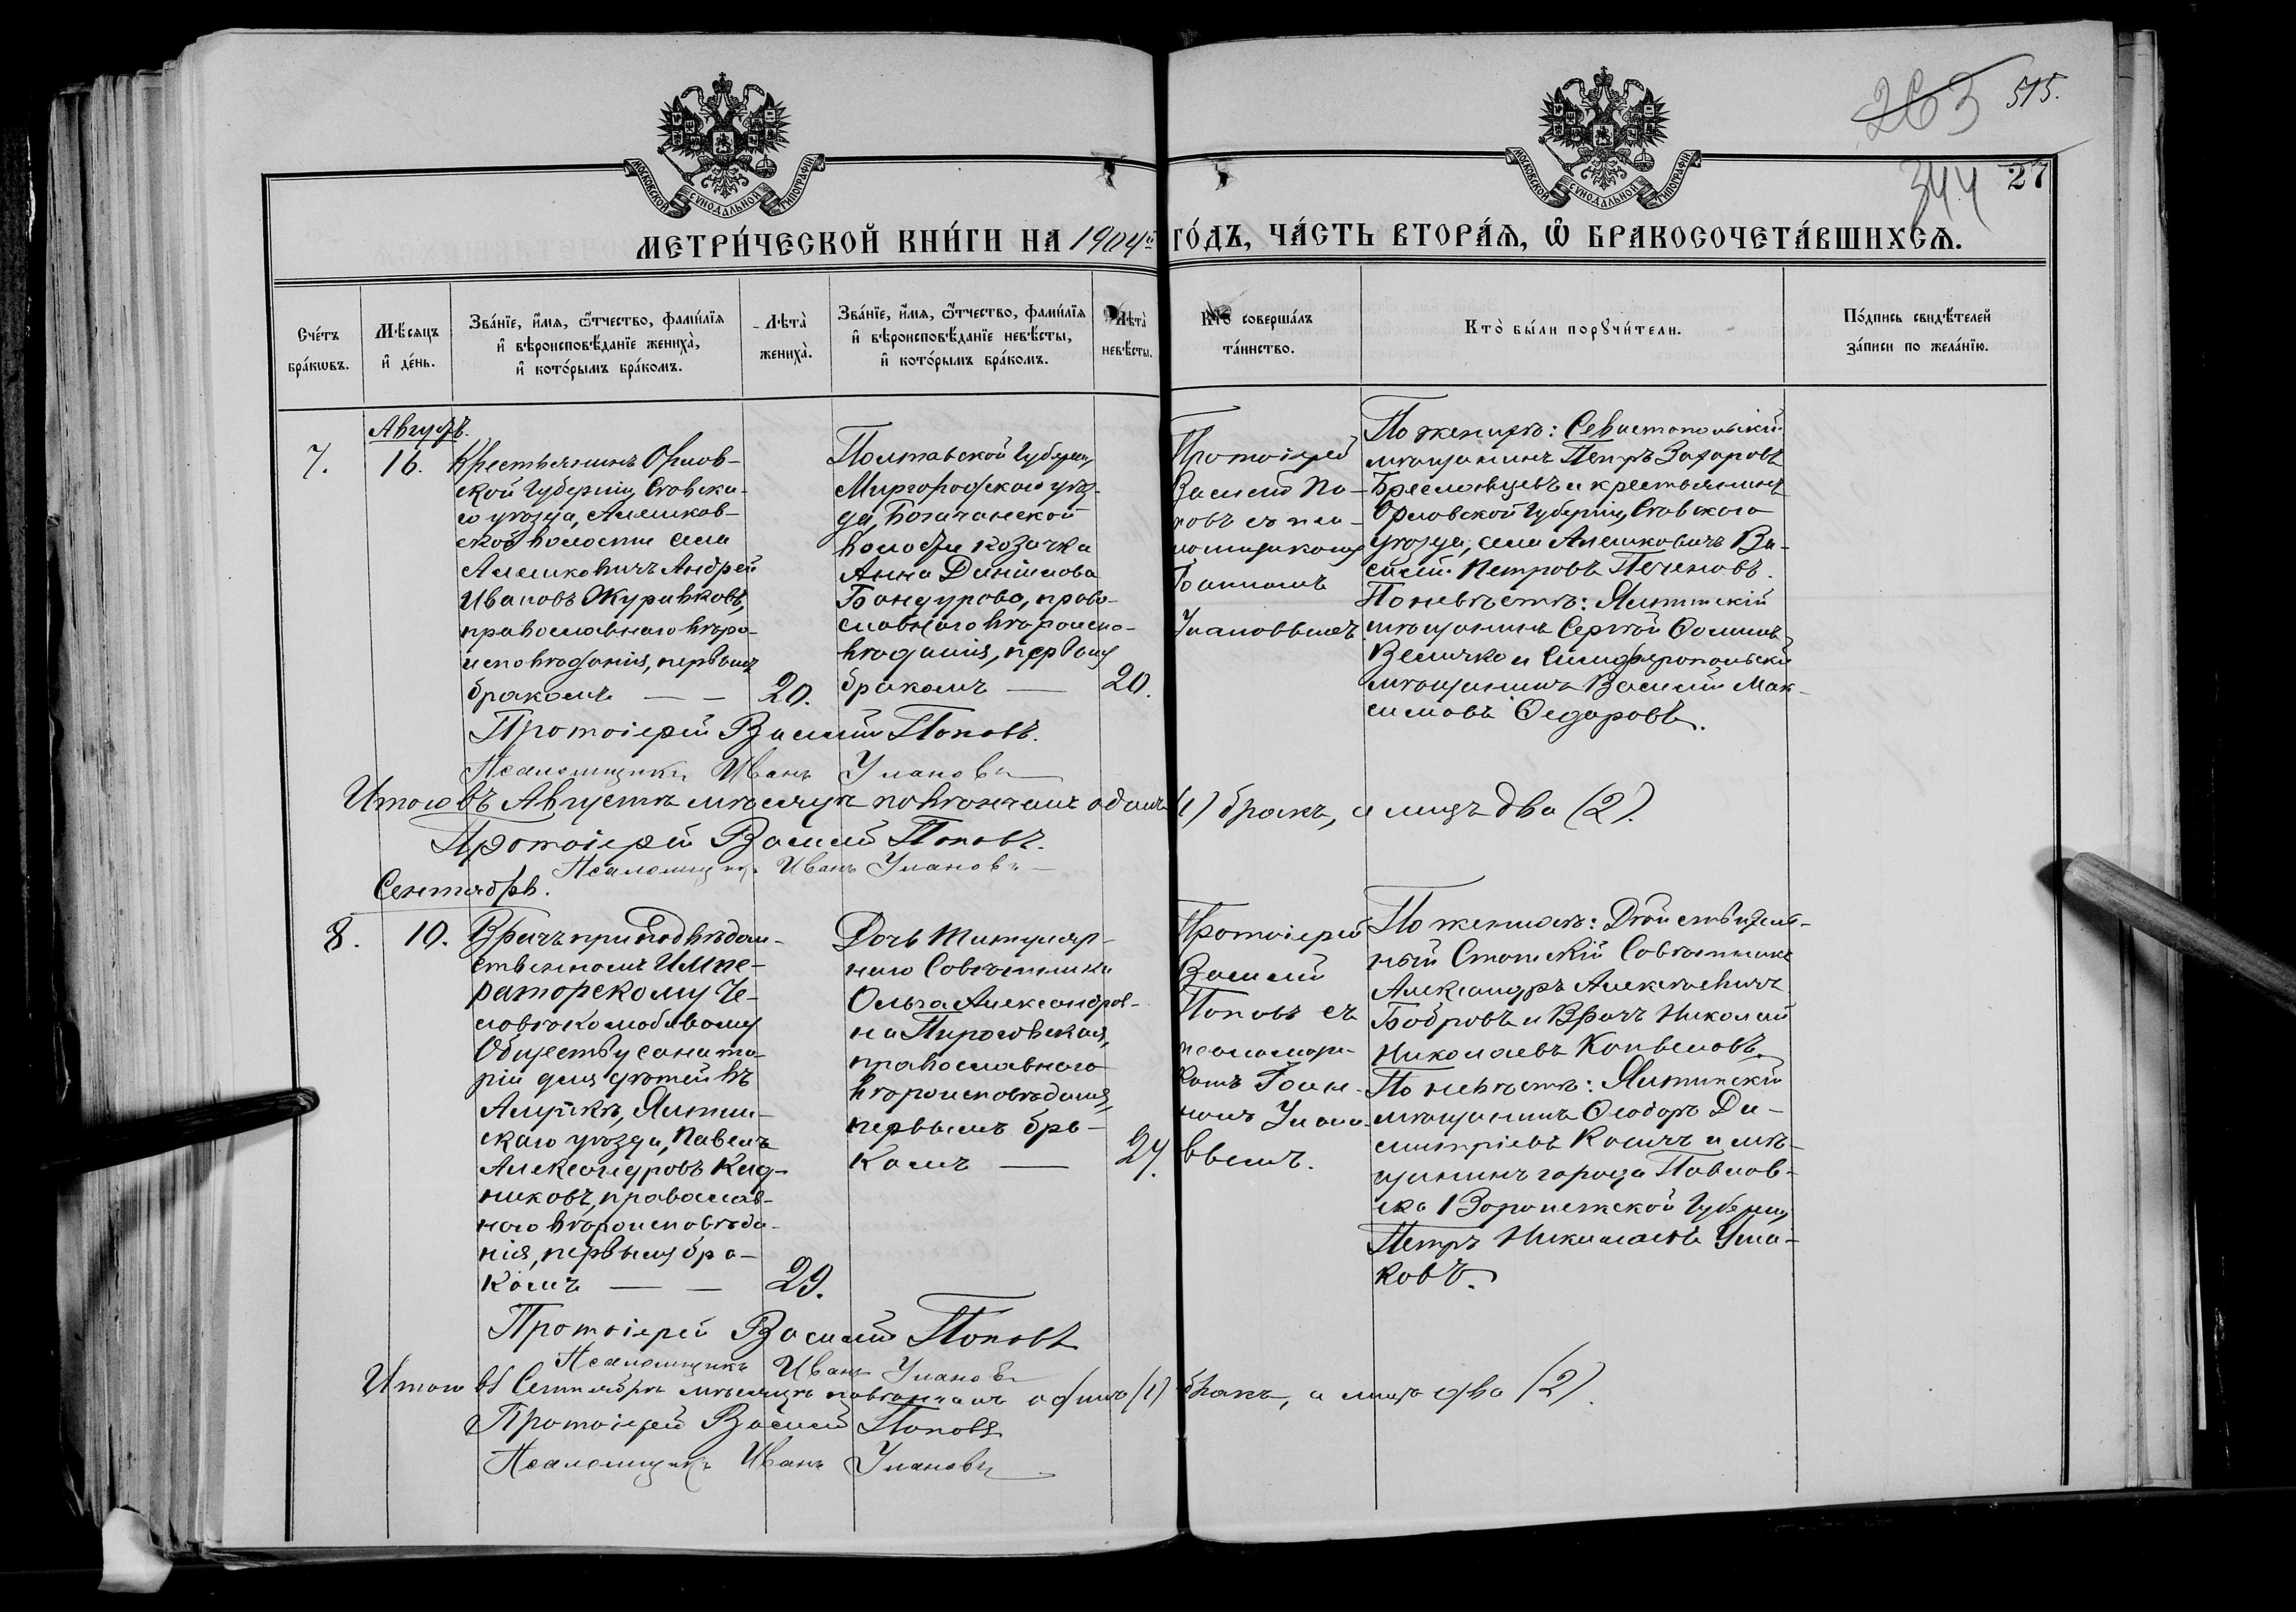 263 515.
344 27
МОСКОВСКОЙ СѴНОДАЛЬНОЙ ТИПОГРАФІИ
МОСКОВСКОЙ СѴНОДАЛЬНОЙ ТИПОГРАФІИ
МЕТРИ́ЧЕСКОЙ КНИ́ГИ НА 1904й ГО́ДЪ, ЧА́СТЬ ВТОРА́Ѧ, Ѽ БРАКОСОЧЕТА́ВШИХСѦ.
Сче́тъ
бра́кѡвъ.
Мѣ́сяцъ
и҆ де́нь.
Зва́нїе, и҆́мѧ, ѻ҆́тчество, фами́лїѧ
и҆ вѣроисповѣ́данїе жениха̀,
и҆ кото́рымъ бра́комъ.
Лѣта̀
жениха̀.
Зва́нїе, и҆́мѧ, ѻ҆́тчество, фами́лїѧ
и҆ вѣроисповѣ́данїе невѣ́сты,
и҆ кото́рымъ бра́комъ.
Лѣта̀
невѣ́сты.
Кто̀ соверша́лъ
та́инство.
Кто̀ бы́ли порꙋчи́тели.
По́дпись свидѣ́телей
за́писи по жела́нїю.
Августъ.
7.
16.
Крестьянинъ Орлов-
ской Губерніи, Сѣвска-
го уѣзда, Алешков-
ской волости села
Алешковичъ Андрей
Ивановъ Журавковъ,
православнаго вѣро-
исповѣданія, первымъ
бракомъ — —
20.
Полтавской Губерніи,
Миргородскаго уѣз-
да, Богачанской
волости козачка
Анна Даніилова
Бандурова, право-
славнаго вѣроиспо-
вѣданія, первымъ
бракомъ —
20.
Протоіерей
Василій По-
повъ съ пса-
ломщикомъ
Іоанномъ
Улановымъ
По женихѣ: Севастопольскій
мѣщанинъ Петръ Захаровъ
Бреславцевъ и крестьянинъ
Орловской Губерніи, Сѣвскаго
уѣзда, села Алешковичъ Ва-
силій Петровъ Печеновъ.
По невѣстѣ: Ялтинскій
мѣщанинъ Сергѣй Ѳоминъ
Величко и Симферопольскій
мѣщанинъ Василій Мак-
симовъ Ѳедоровъ.
Протоіерей Василій Поповъ.
Псаломщикъ Иванъ Улановъ
Итого въ Августѣ мѣсяцѣ повѣнчанъ одинъ (1) бракъ, а лицъ два (2).
Протоіерей Василій Поповъ.
Псаломщикъ Иванъ Улановъ
Сентябрь.
8.
10.
Врачъ при Подвѣдом-
ственномъ Импе-
раторскому Че-
ловѣколюбивому
Обществу санато-
ріи для дѣтей въ
Алупкѣ, Ялтин-
скаго уѣзда, Павелъ
Александровъ Кад-
никовъ, православ-
наго вѣроисповѣда-
нія, первымъ бра-
комъ — —
29.
Дочь Титуляр-
наго Совѣтника
Ольга Александров-
на Пироговская,
православнаго
вѣроисповѣданія,
первымъ бра-
комъ —
24.
Протоіерей
Василій
Поповъ съ
псаломщи-
комъ Іоан-
номъ Улано-
вымъ.
По женихѣ: Дѣйствитель-
ный Статскій Совѣтникъ
Александръ Алексѣевичъ
Бобровъ и Врачъ Николай
Николаевъ Копыловъ.
По невѣстѣ: Ялтинскій
мѣщанинъ Ѳеодоръ Ди-
митріевъ Косичъ и мѣ-
щанинъ города Павлов-
ска Воронежской Губерніи,
Петръ Николаевъ Уша-
ковъ.
Протоіерей Василій Поповъ
Псаломщикъ Иванъ Улановъ
Итого въ Сентябрѣ мѣсяцѣ повѣнчанъ одинъ (1) бракъ, а лицъ два (2).
Протоіерей Василій Поповъ
Псаломщикъ Иванъ Улановъ